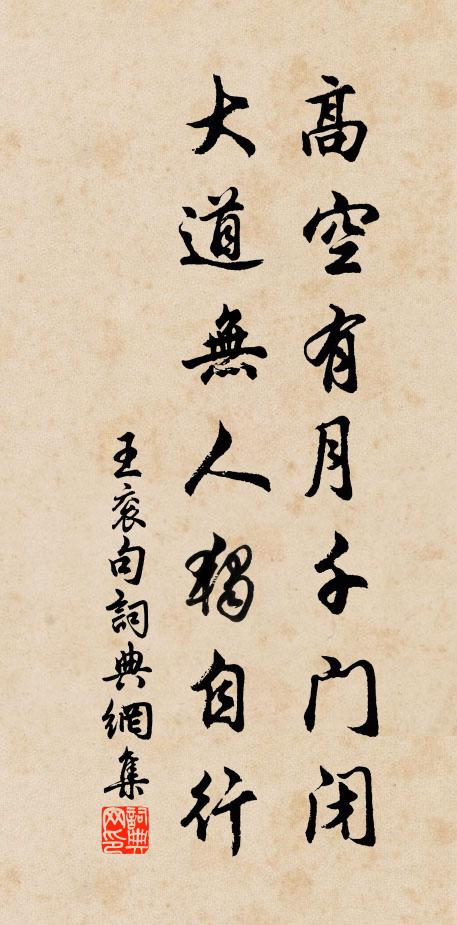 高空有月千门闭
大道無人獨自行
王衮句詞典網集
詞典网印